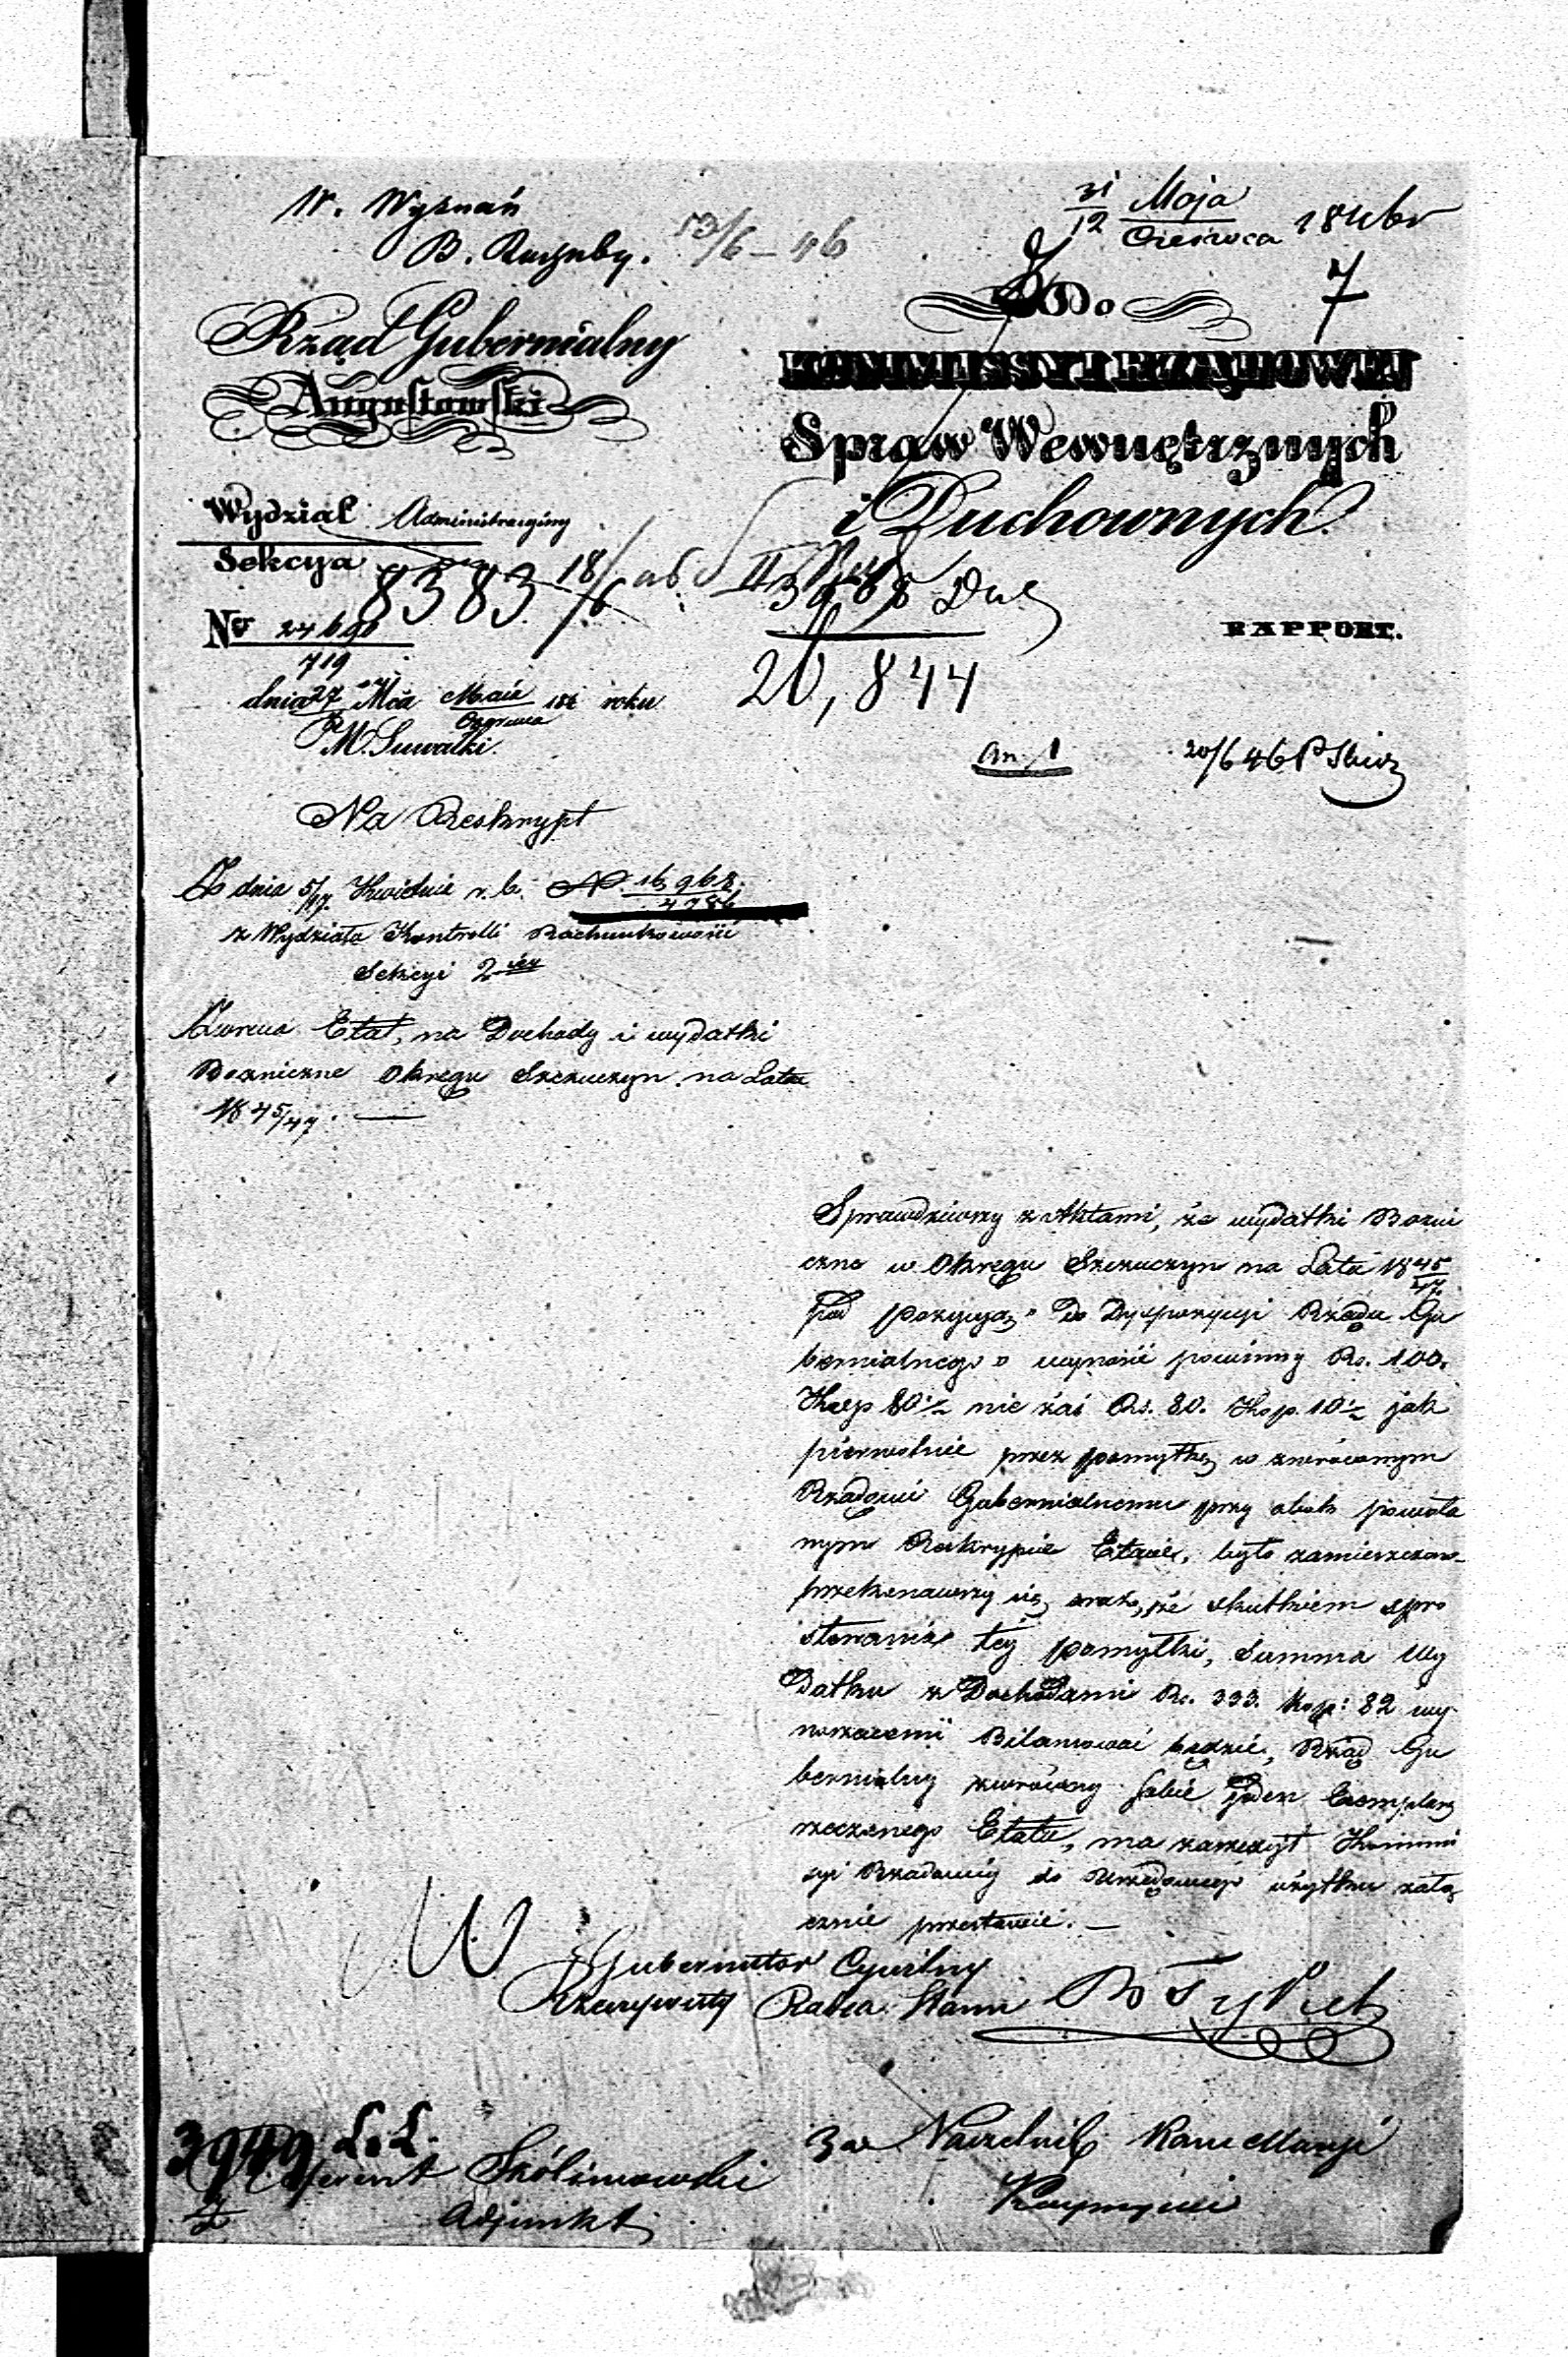 W. Wyznań
B.
13/6 – 46
31/12 Maja/Czerwca 1846 r
7
Rząd Gubernialny
Augustowski
Do
KOMMISSYI RZĄDOWEJ
Spraw Wewnętrznych
i Duchownych
Wydział Administracyjny
Sekcya
8383 18/6
Nro 24690/719
20,844
RAPPORT.
dnia 27 Mca Maia/Czerwca 184 roku
M. Suwałki.
an. 1
20/6 46
Na Reskrypt
Z dnia 5/17. Kwietnia r. b. N. 16968/4786
z Wydziału Kontrolli Rachunkowości
Sekcyi 2iej
Zwraca Etat, na Dochody i wydatki
Bozniczne Okręgu Szczuczyn na Lata
1845/47. —
Sprawdziwszy z Aktami, że wydatki Bozni
czne w Okręgu Szczuczyn na Lata 1845/47
pod pozycyą „Do Dyspozycyi Rządu Gu
bernialnego" wynosić powinny Rs. 100.
Kop 80½ nie zaś Rs. 80. Kop. 10½ jak
pierwotnie przez pomyłkę w zwróconym
Rządowi Gubernialnemu przy obok powoła
nym Reskrypcie Etacie, było zamieszczono
przekonawszy się oraz, że skutkiem spro
stowania tej pomyłki, Summa Wy
datku z Dochodami Rs. 333. Kop: 82 wy
noszącemi Bilansować będzie, Rząd Gu
bernialny zwrócony sobie jeden Exemplarz
rzeczonego Etatu, ma zaszczyt Kommis
syi Rządowej do Urzędowego użytku załą
cznie przestawić. —
Gubernator Cywilny
Rzeczywisty Radca Stanu
3949
Referent Skólimowski
Adjunkt
Za Naczelnik Kancellaryi